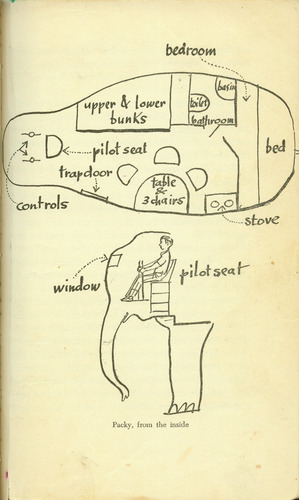 bedroom
basin
toilet
upper & lower
bunks
bathroom
pilot seat
bed
trapdoor
table
&
3 chairs
controls
stove
window
pilot seat
Packy, from the inside